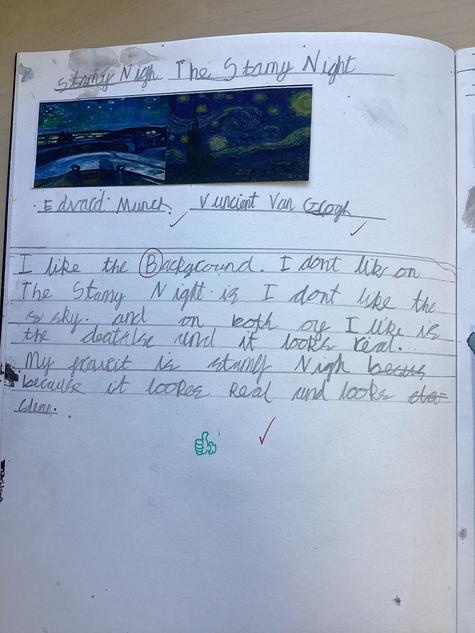 Stamy Nigh The Stamy Night
Edvard Munch. Vuncient Van Grogh
I like the Background. I dont like on
The Stamy Night is I dont like the
s sky. and on both of I like is
the deatalse und it looks real.
My frouit is stamy Nigh becuss
because it lookes Real and looks
clear.